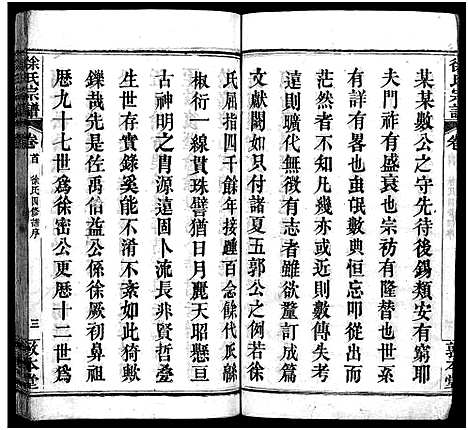 某某數公之守先待後錫類安有窮耶
夫門祚有盛衰也宗祊有隆替也世系
有詳有畧也數典恒忘而敦愼
茫然者不知凡幾亦或近則數傳失考
遠則曠代無徵有志者雖欲釐訂而
文獻闕如只此諸夏五郭公之例若徐
氏屈指四千餘年接踵百念餘代瓜緜
椒衍一線貫珠譬猶日月麗天昭懸亘
古神明之胄源遠固卜流長非賢哲疊
生世存實錄奚能不爽毫釐有如此之
鑠哉先是佐禹伯益公係徐厥初鼻祖
歴九十七世爲徐密公更歴十二世爲
徐氏宗譜
卷首
徐氏四修譜序
三
敦本堂